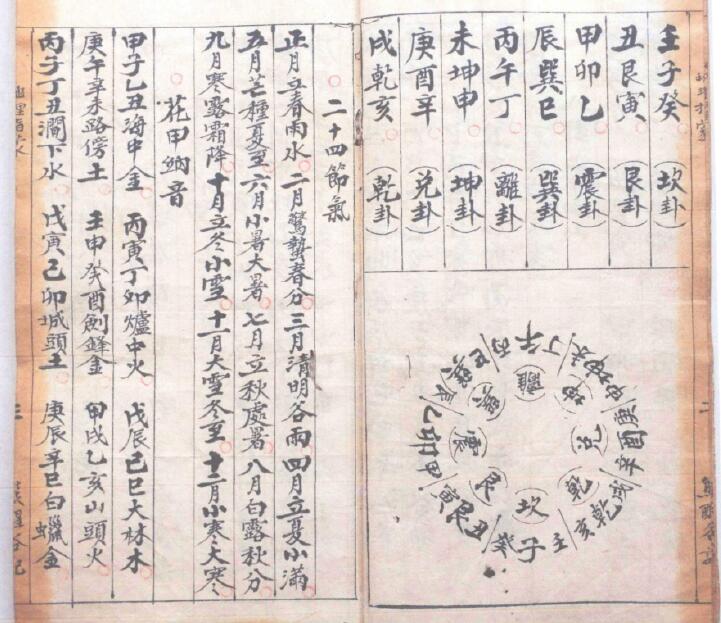 壬子癸(坎卦)
丑艮寅(艮卦)
甲卯乙(震卦)
辰巽巳(巽卦)
丙午丁(離卦)
未坤申(坤卦)
庚酉辛(兌卦)
戌乾亥(乾卦)
丙午丁
未坤申
庚酉辛
戌乾亥
壬子癸
丑艮寅
甲卯乙
辰巽巳
離
坤
兌
乾
坎
艮
震
巽
二十四節氣
正月立春雨水 二月驚蟄春分 三月清明谷雨 四月立夏小滿
五月芒種夏至 六月小暑大暑 七月立秋處暑 八月白露秋分
九月寒露霜降 十月立冬小雪 十一月大雪冬至 十二月小寒大寒
花甲納音
甲子乙丑海中金 丙寅丁卯爐中火 戊辰己巳大林木
庚午辛未路傍土 壬申癸酉劍鋒金 甲戌乙亥山頭火
丙子丁丑澗下水 戊寅己卯城頭土 庚辰辛巳白蠟金